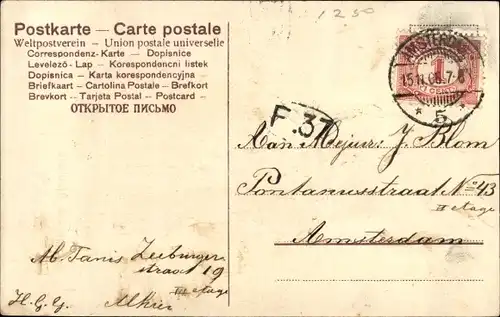 1250
Postkarte — Carte postale
Weltpostverein — Union postale universelle
Correspondenz-Karte — Dopisnice
Levelező-Lap — Korespondencni listek
Dopisnica — Karta korespondencyjna
Briefkaart — Cartolina Postale — Brefkort
Brevkort — Tarjeta Postal — Postcard —
ОТКРЫТОЕ ПИСЬМО
AMSTERDAM
1
CENT
5
F.37
Aan Mejuir: J. Blom
Pontanusstraat No 43
II etage
Amsterdam
Ab. Tanis Zeeburger
straat 19
III etage
H.G.G.